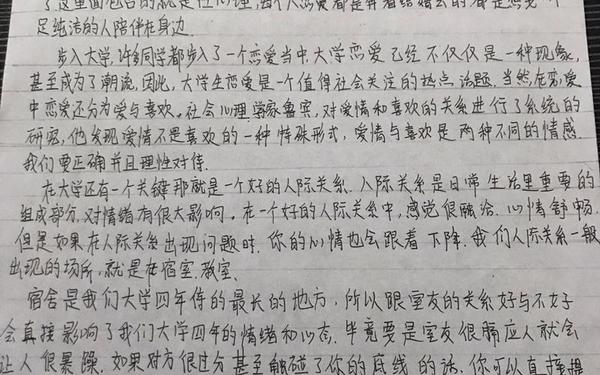 了这里面包含的就是性心理,每个人恋爱都是奔着结婚去的都是想找个
足纯洁的人陪伴在身边.
步入大学,许多同学都步入了一个恋爱当中.大学恋爱已经不仅仅是一种现象,
甚至成为了潮流,因此,大学生恋爱是一个值得社会关注的热点话题.当然在恋爱
中恋爱还分为爱与喜欢.社会心理学家鲁宾,对爱情和喜欢的关系进行了系统的
研究,他发现爱情不是喜欢的一种特殊形式,爱情与喜欢是两种不同的情感.
我们要正确并且理性对待.
在大学还有一个关键那就是一个好的人际关系.人际关系是日常生活里重要的
组成部分.对情绪有很大影响.在一个好的人际关系中,感觉很融洽.心情舒畅.
但是如果在人际关系出现问题时.你的心情也会跟着下降.我们人际关系一般
出现的场所,就是在宿室,教室.
宿舍是我们大学四年待的最长的地方,所以跟室友的关系好与不好
会直接影响了我们大学四年的情绪和心态.毕竟要是室友很膈应人就会
让人很暴躁.如果对方很过分甚至触碰了你的底线的话.你可以直接提